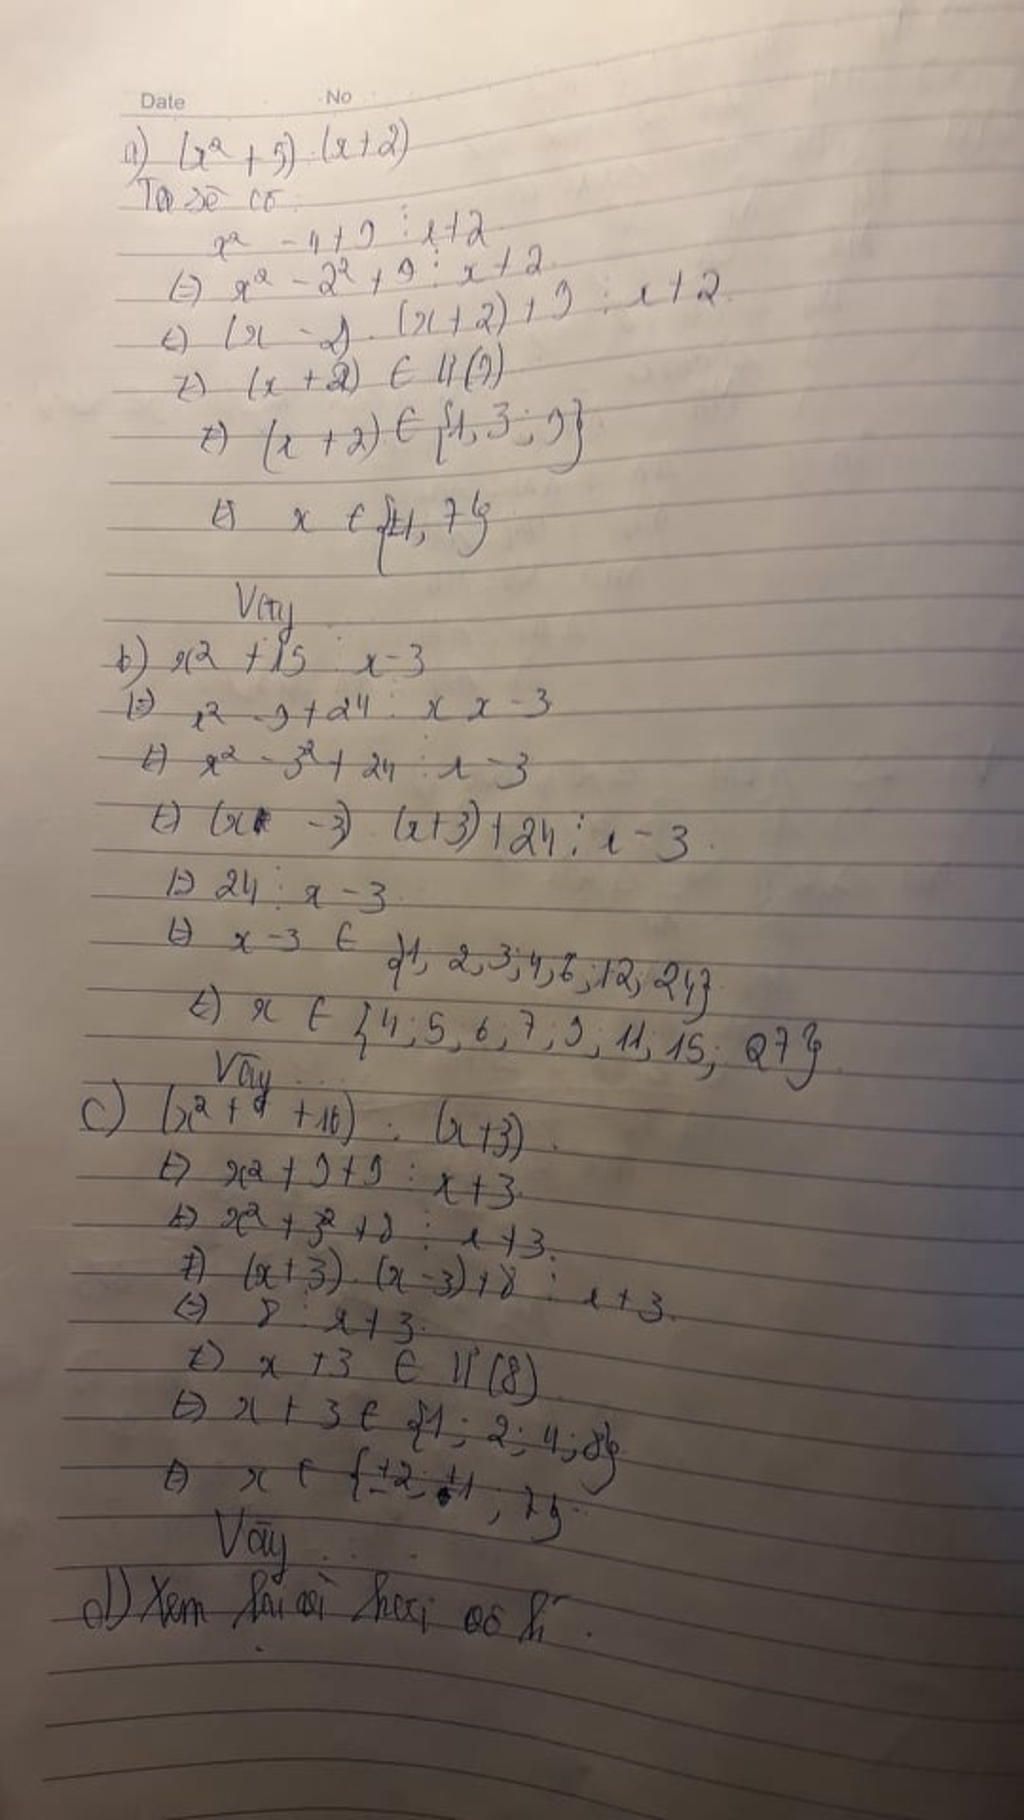 Date No
a) (x² + 5) ⋮ (x+2)
Ta sẽ có:
x² - 4 + 9 ⋮ x+2
(=) x² - 2² + 9 ⋮ x + 2
(=) (x - 2) . (x+2) + 9 ⋮ x + 2
(=) (x + 2) ∈ Ư(9)
(=) (x + 2) ∈ {1, 3 ; 9}
(=) x ∈ {±1, 7}
Vậy
b) x² + 15 ⋮ x - 3
(=) x² - 9 + 24 ⋮ x x - 3
(=) x² - 3² + 24 ⋮ x - 3
(=) (x - 3) (x+3) + 24 ⋮ x - 3
(=) 24 ⋮ x - 3
(=) x - 3 ∈ {1, 2, 3; 4, 6; 12; 24}
(=) x ∈ {4; 5, 6, 7; 9; 11; 15; 27}
Vậy ...
c) (x² + + 16) ⋮ (x+3)
(=) x² + 9 + 9 ⋮ x + 3
(=) x² + 3² + 8 ⋮ x + 3
(=) (x+3) . (x - 3) + 8 ⋮ x + 3
(=) 8 ⋮ x + 3
(=) x + 3 ∈ Ư(8)
(=) x + 3 ∈ {1; 2; 4; 8}
(=) x ∈ {±2; ±1; 7}
Vậy ...
d) Xem lại